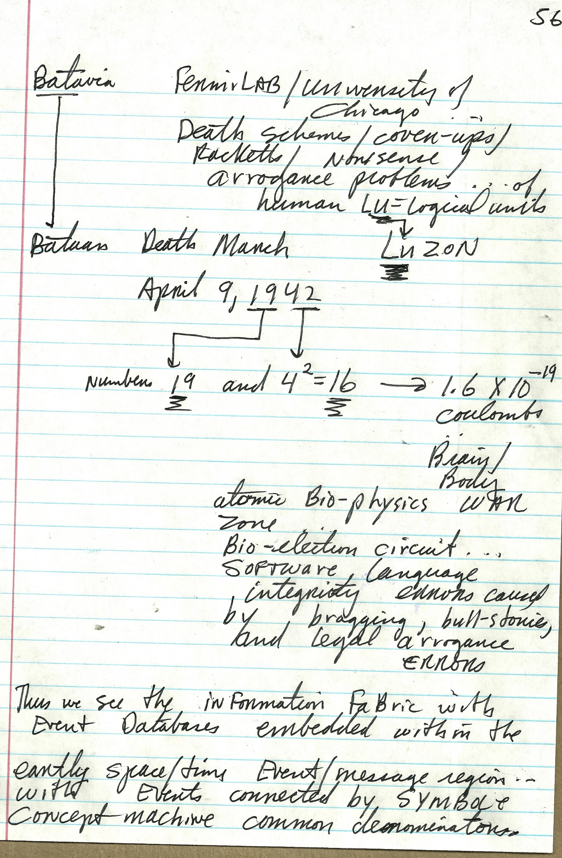 56
Batavia FermiLAB/University of
Chicago...
Death schemes/cover-ups/
Racketts/ Nonsense/
arrogance problems.... of
human LU=Logical units
Bataan Death March LuZON
April 9, 1942
Numbers 19 and 4²=16 → 1.6 X 10⁻¹⁹
coulombs
Brain/
Body
atomic Bio-physics WAR
Zone...
Bio-election circuit...
SOFTWARE, language
, integrity errors caused
by bragging, bull-stories,
and legal arrogance
ERRORS
Thus we see the inFormation FaBric with
Event Databases embedded within the
earthly space/time Event/message region...
with Events connected by SYMBOLE
Concept-machine common denominators.